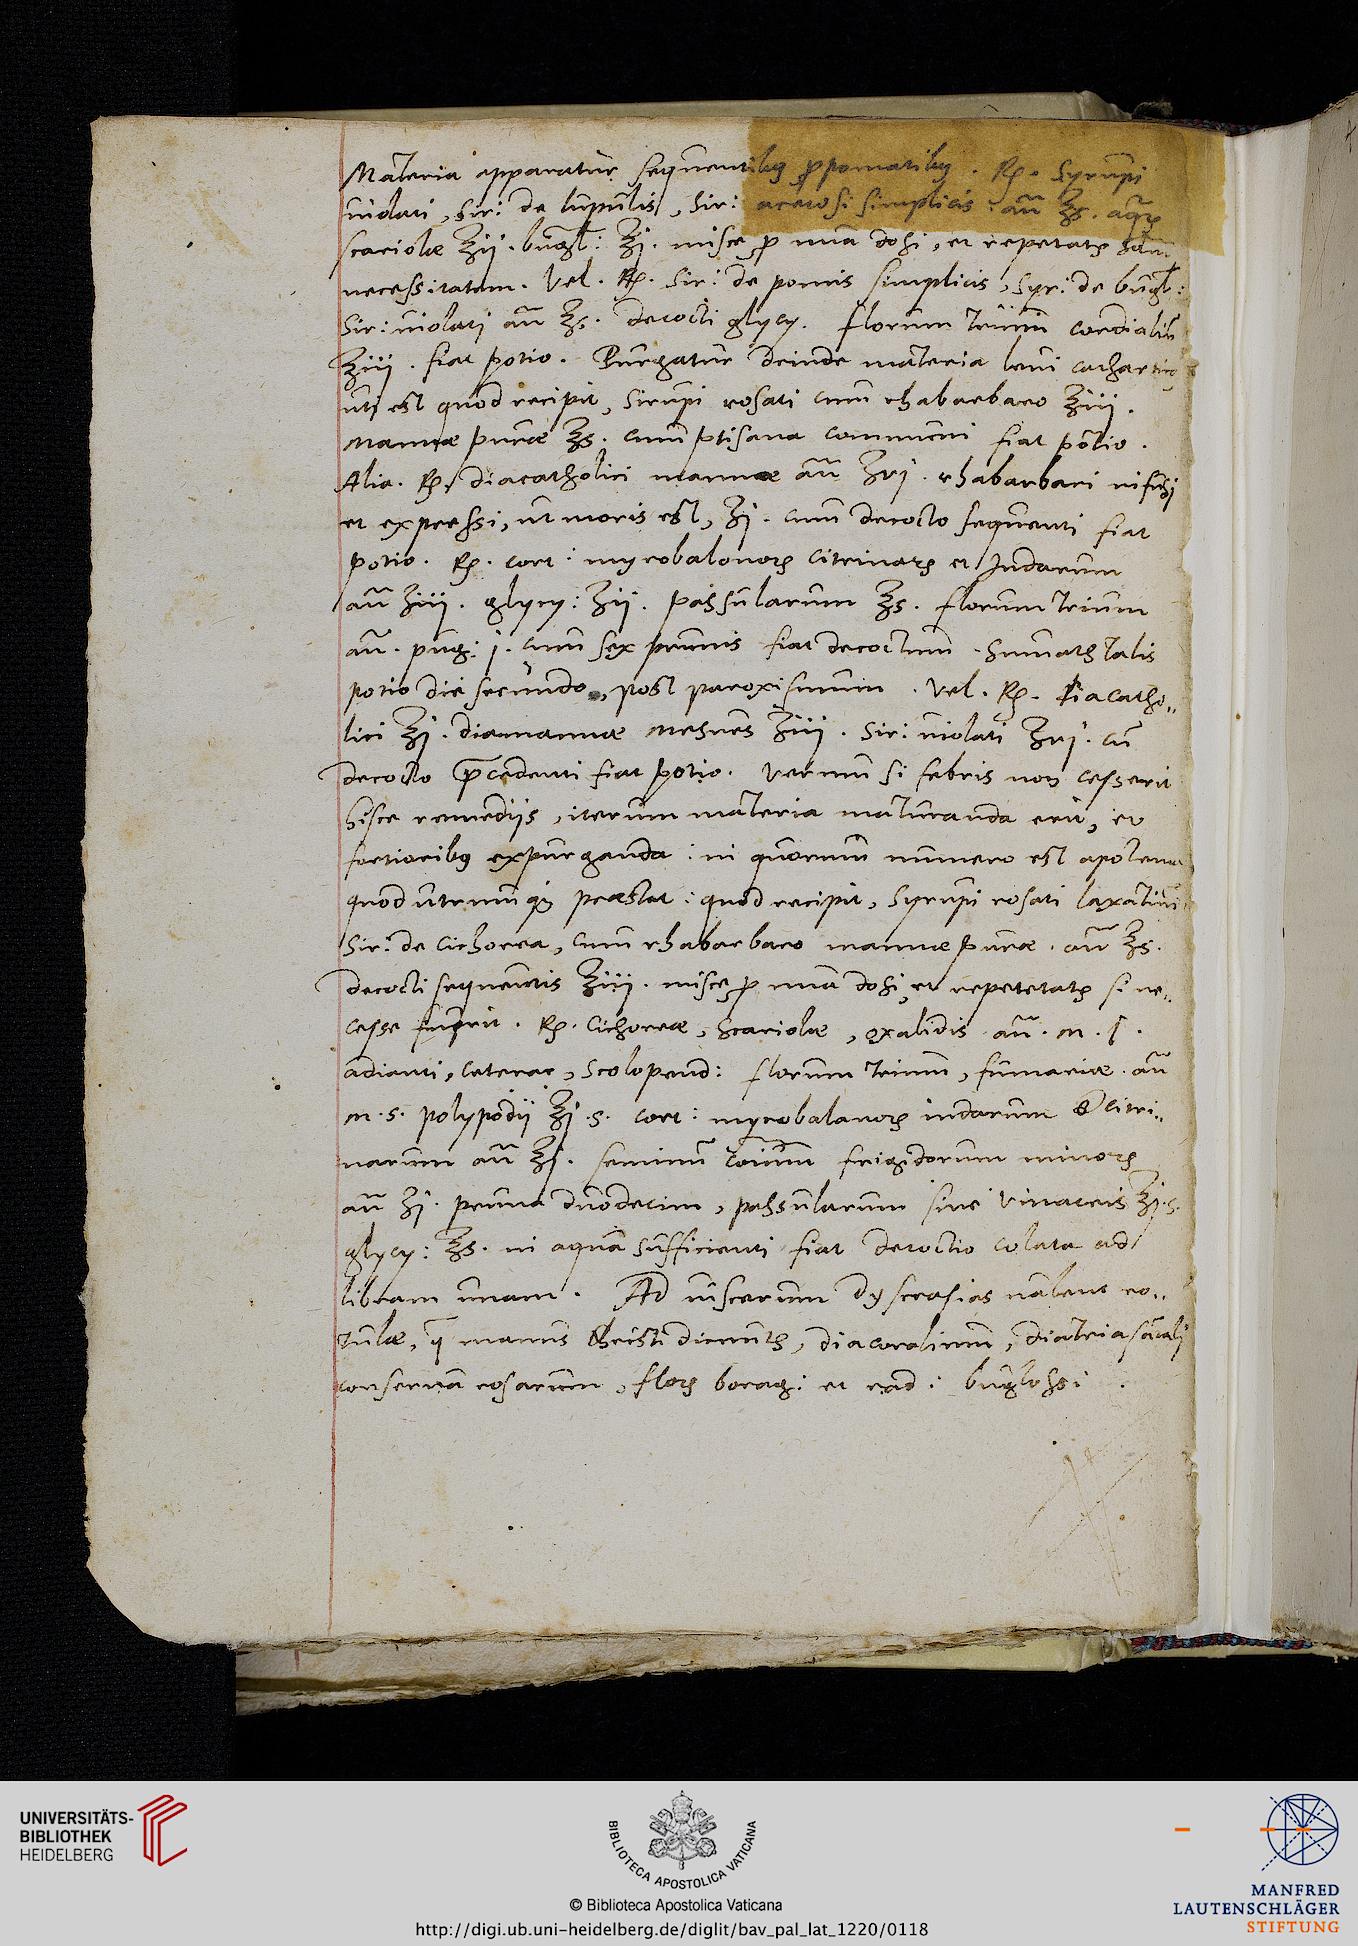 Materia apparatur sequentibꝰ ꝓpomatibꝰ. ℞. Syrupi
violati, sir: de lupulis, Sir: acetosi simplicis: añ ℥s. aquæ
scariolæ ℥ij. bugl: ℥j. misce ꝓ una dosi, et repetatꝛ
necessitatem. Vel. ℞. Sir: de pomis simplicis, Syr: de bugl:
Sir: violati añ ℥s. decocti glycy. florum trium cordialiũ
℥iij. fiat potio. Purgatur deinde materia leni cathartico
uti est quod recipit, Sirupi rosati cum rhabarbaro ℥iij.
Mannæ puræ ℥s. cum ptisana communi fiat potio.
Alia. ℞. diacatholici mannæ añ ʒvj. rhabarbari infusi
et expressi, ut moris est, ʒj. cum decocto sequenti fiat
potio. ℞. cort: myrobalonoꝝ citrinaꝝ et Indarum
añ ʒiij. glycy: ʒij. passularum ℥s. florum trium
añ. pug: j. cum sex prunis fiat decoctum. Sumatꝛ talis
potio die secundo, post paroxismum. Vel. ℞. diacatho„
lici ℥j. diamannæ Mesues ʒiij. Sir: violati ʒvj. cũ
decocto p̄cedenti fiat potio. Verum si febris non cesserit
hisce remedijs, iterum materia maturanda erit, et
fortioribꝰ expurganda: in quorum numero est apozema
quod utrumqꝫ præstat: quod recipit, Syrupi rosati laxatiui
Sir: de Cichorea, cum rhabarbaro mannæ puræ. añ ℥s.
decocti sequentis ℥iij. misce ꝓ una dosi, et repetetatꝛ si ne„
cesse fuerit. ℞. Cichoreæ, Scariolæ, oxalidis añ. m. I.
adianti, ceterac, scolopend: florum trium, fumariæ. añ
m. s. polypodij ℥j.s. cort: myrobalanoꝝ indarum & citri„
narum añ ℥j. seminũ frigidorum minoꝝ
añ ʒj. pruna duodecim, passularum sine vinaceis ℥j.s.
glycy: ℥s. in aqua sufficienti fiat decoctio colata ad
libram unam. Ad viscerum dyscrasias ualent ro„
tulæ, q̄ manus Christi dicuntꝛ, diacoralinum, diatriasãtalj
conserua rosarum, floꝝ borag: et rad: buglossi.
UNIVERSITÄTS-
BIBLIOTHEK
HEIDELBERG
BIBLIOTECA APOSTOLICA VATICANA
© Biblioteca Apostolica Vaticana
http://digi.ub.uni-heidelberg.de/diglit/bav_pal_lat_1220/0118
MANFRED
LAUTENSCHLÄGER
STIFTUNG